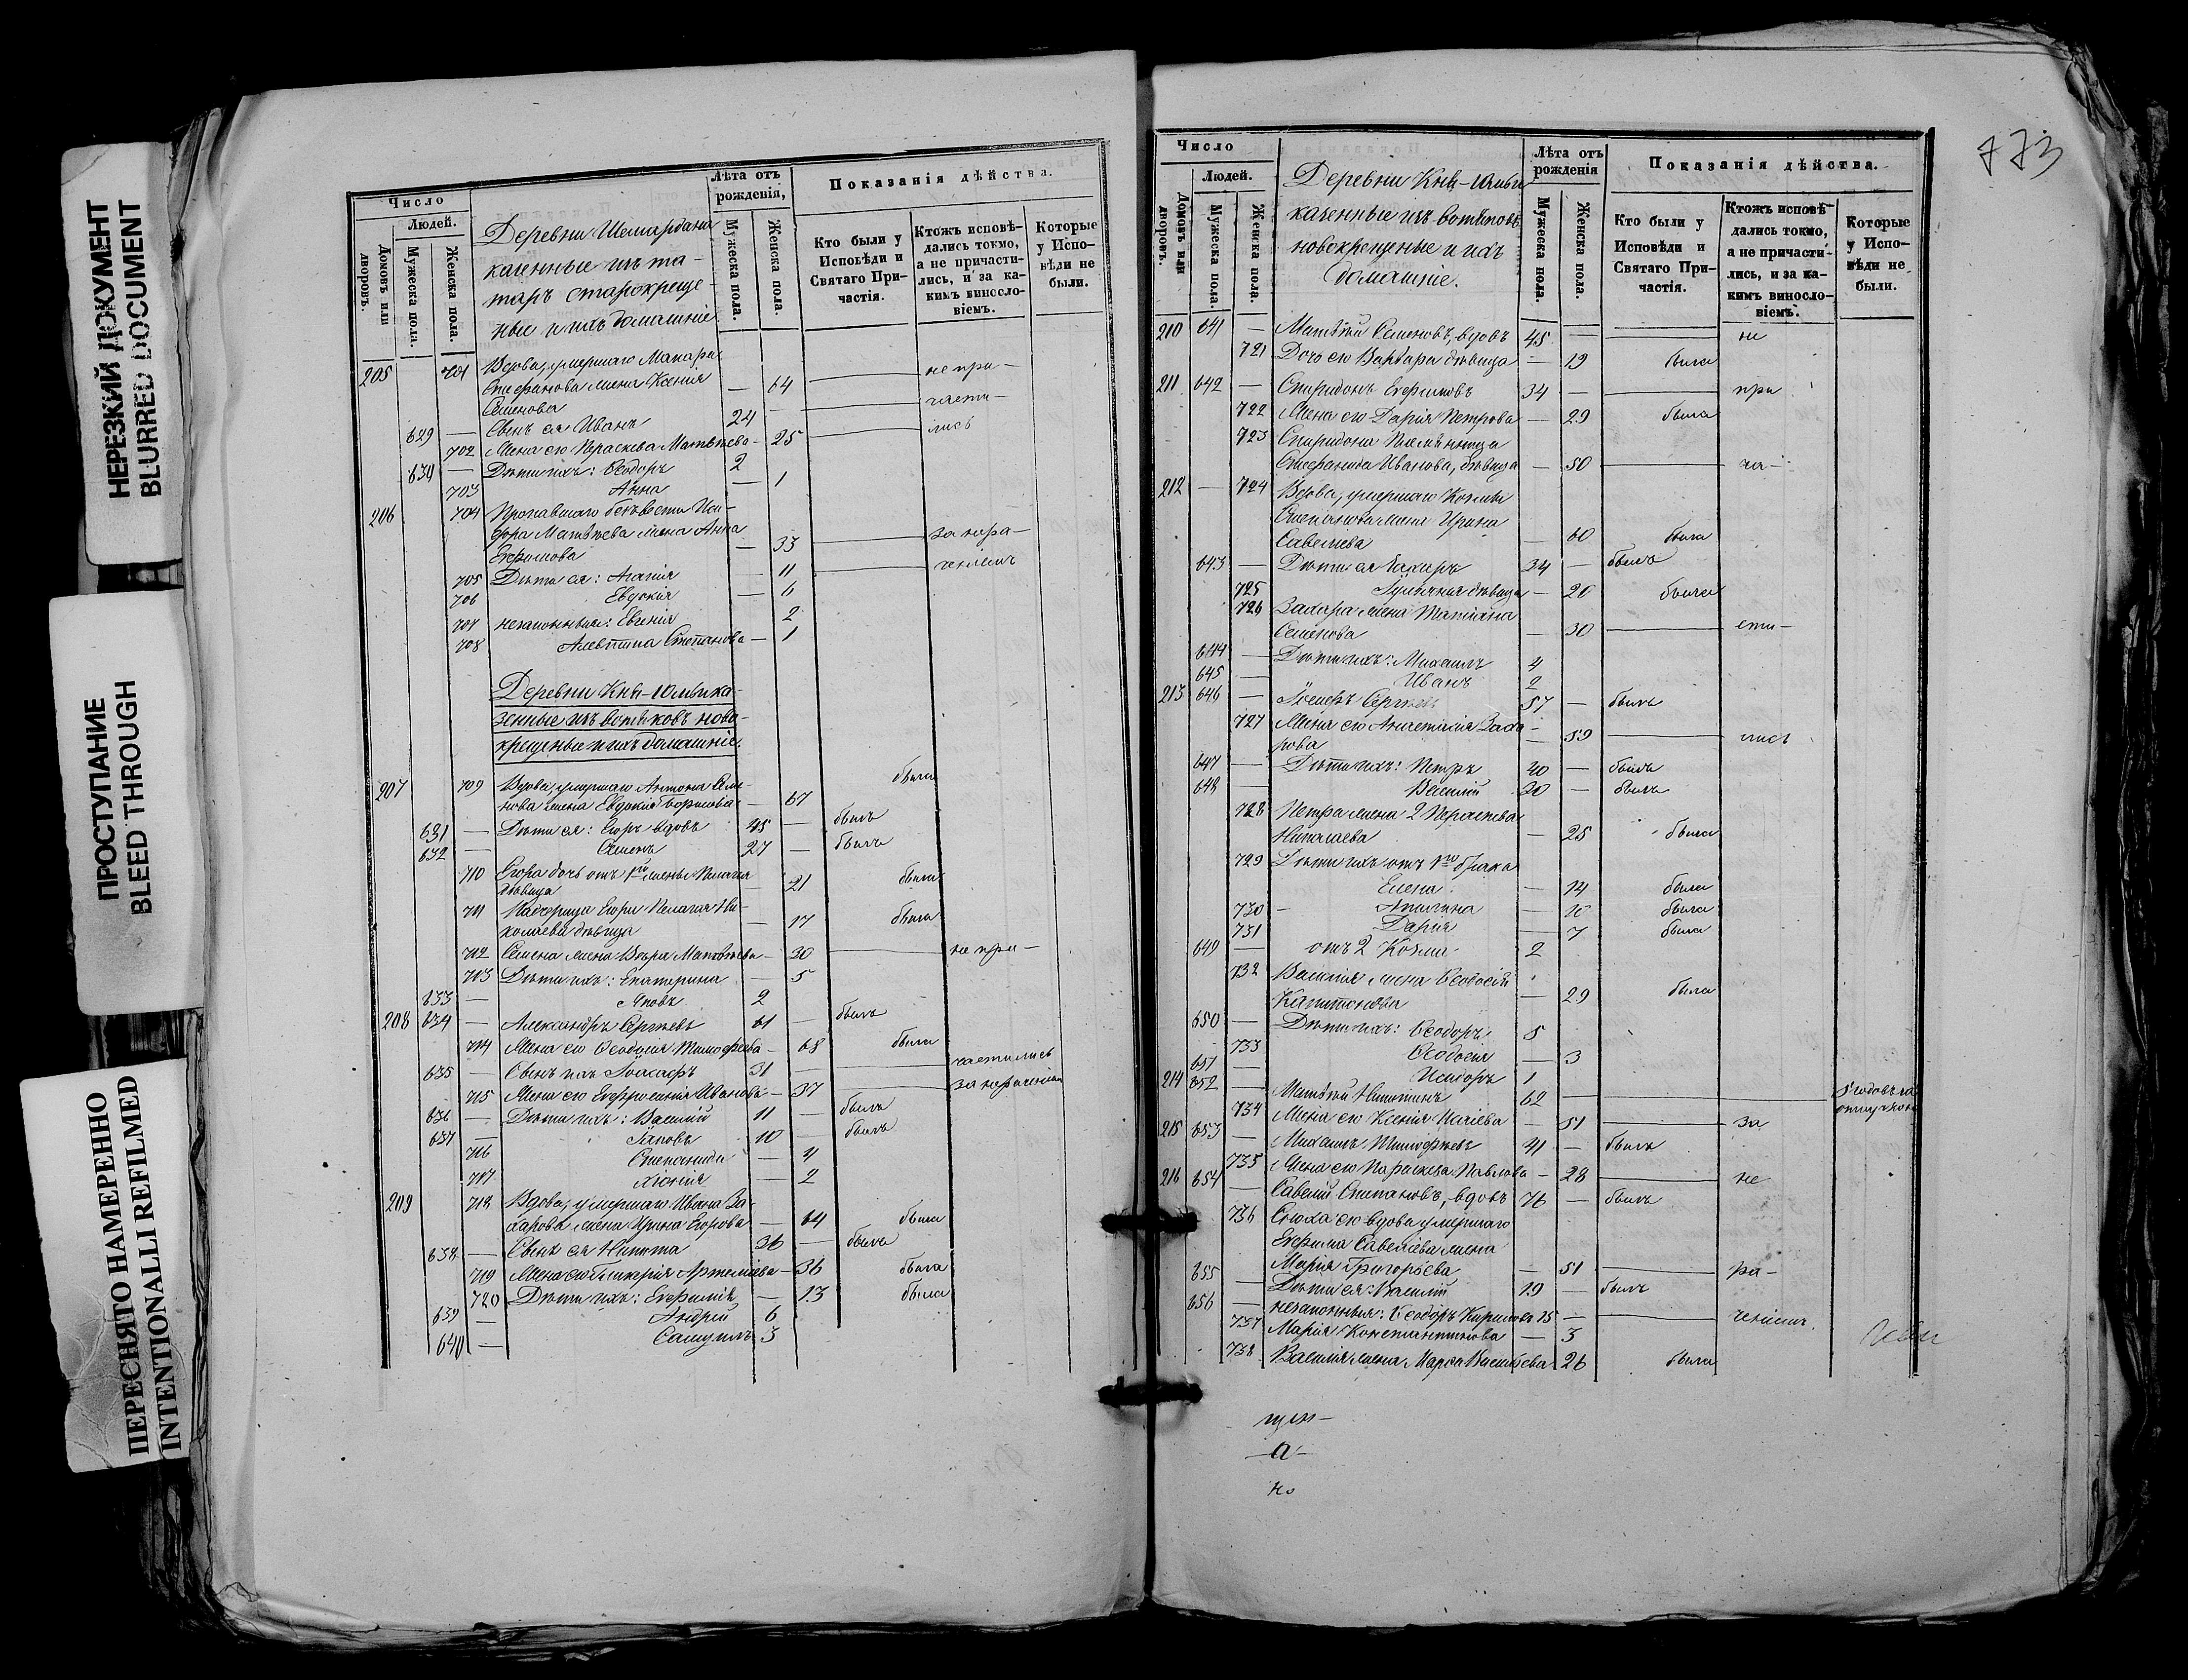 НЕРЕЗКИЙ ДОКУМЕНТ
BLURRED DOCUMENT
ПРОСТУПАНИЕ
BLEED THROUGH
ПЕРЕСНЯТО НАМЕРЕННО
INTENTIONALLI REFILMED
Число
Людей.
Домовъ или дворовъ.
Мужеска пола.
Женска пола.
Деревни Шемардана
казенные изъ та-
таръ старокреще-
ные и ихъ домашніе
Лѣта отъ рожденія,
Мужеска пола.
Женска пола.
Показанія дѣйства.
Кто были у Исповѣди и Святаго При-частія.
Ктожъ исповѣ-дались токмо, а не причасти-лись, и за ка-кимъ виносло-віемъ.
Которые у Испо-вѣди не были.
205 701 Вдова, умершаго Макара
Стефанова жена Ксенія не при-
Семенова — 64 части-
629 — Сынъ ея Иванъ 24 — лись
702 Жена его Параскева Матвѣева — 25
630 — Дѣти ихъ: Ѳеодоръ 2
703 Анна — 1
206 704 Пропавшаго безъ вѣсти
Матвѣева жена Анна
Ефимова — 33 за нера-
705 Дѣти ея: Агапія — 11 чeніемъ
706 Евдокія — 6
707 незаконныя: Евгенія 2
708 Алевтина Степанова — 1
Деревни Кня-Юмьи ка-
зенные изъ вотяковъ ново-
крещеные и ихъ домашніе.
207 709 Вдова, умершаго Антона Семе-
нова жена Евдокія Борисова — 67 была
631 — Дѣти ея: Егоръ вдовъ 45 — былъ
632 — Семенъ 27 — былъ
710 Егора дочь отъ 1й жены Пелагія
дѣвица — 21 была
711 Падчерица Егора Пелагія Ни-
колаева дѣвица — 17 была
712 Семена жена Вѣра Матвѣева — 30 не при-
713 Дѣти ихъ: Екатерина — 5
633 — Яковъ 2
208 634 — Александръ Сергѣевъ 61 — былъ
714 Жена его Ѳеодосія Тимофеева — 68 была
635 — Сынъ ихъ Іоасафъ 31 — частились
715 Жена его Евфросинія Иванова — 37 за нераченіемъ
636 — Дѣти ихъ: Василій 11 — былъ
637 — Іаковъ 10 — былъ
716 Степанида — 4
717 Хіонія — 2
209 718 Вдова, умершаго Ивана За-
харова жена Ирина Егорова — 64 была
638 — Сынъ ея Никита 36 — былъ
719 Жена его Гликерія Артеміева — 36 была
720 Дѣти ихъ: Евфимія — 13 была
639 — Андрей 6
640 — Самуилъ 3
773
Число
Людей.
Домовъ или дворовъ.
Мужеска пола.
Женска пола.
Деревни Кня-Юмьи
казенные изъ вотяковъ
новокрещеные и ихъ
домашніе.
Лѣта отъ рожденія
Мужеска пола.
Женска пола.
Показанія дѣйства.
Кто были у Исповѣди и Святаго При-частія.
Ктожъ исповѣ-дались токмо, а не причасти-лись, и за ка-кимъ виносло-віемъ.
Которые у Испо-вѣди не были.
210 641 — Матвѣй Семеновъ, вдовъ 45 — не
721 Дочь его Варвара дѣвица — 19 была
211 642 — Спиридонъ Ефимовъ 34 — при
722 Жена его Дарія Петрова — 29 была
723 Спиридона племянница
Стефанида Иванова, дѣвица — 50 ча-
212 — 724 Вдова, умершаго Козмы
Степанова жена Ирина
Савеліева — 60 была
643 — Дѣти ея Захаръ 34 — былъ
725 Іуліанія дѣвица — 20 была
726 Захара жена Татіана
Семенова — 30 сти-
644 — Дѣти ихъ: Михаилъ 4
645 — Иванъ 2
213 646 — Іосифъ Сергѣевъ 57 — былъ
727 Жена его Анастасія Заха-
рова — 59 лись
647 — Дѣти ихъ: Петръ 40 — былъ
648 — Василій 30 — былъ
728 Петра жена 2 Параскева
Николаева — 25 была
729 Дѣти ихъ отъ 1го брака
Елена — 14 была
730 — Акилина — 10 была
731 Дарія — 7 была
649 — отъ 2 Козма 2
732 Василія жена Ѳеодосія
Капитонова — 29 была
650 — Дѣти ихъ: Ѳеодоръ 5
733 Ѳеодосія — 3
651 — Исидоръ 1
214 652 — Матвѣй Никитинъ 62
734 Жена его Ксенія Исаіева — 51 за
215 653 — Михаилъ Тимофѣевъ 41 — былъ
735 Жена его Параскева Павлова — 28 не
216 654 — Савелій Степановъ, вдовъ 76 — былъ
736 Сноха его вдова умершаго
Ефима Савеліева жена
Марія Григорьева — 51 ра-
655 — Дѣти ея: Василій 19 — былъ
656 — незаконныя: Ѳеодоръ Кириловъ 15 — ченіемъ
737 Марія Константинова — 3
738 Василія жена Марѳа Васильева 26 была